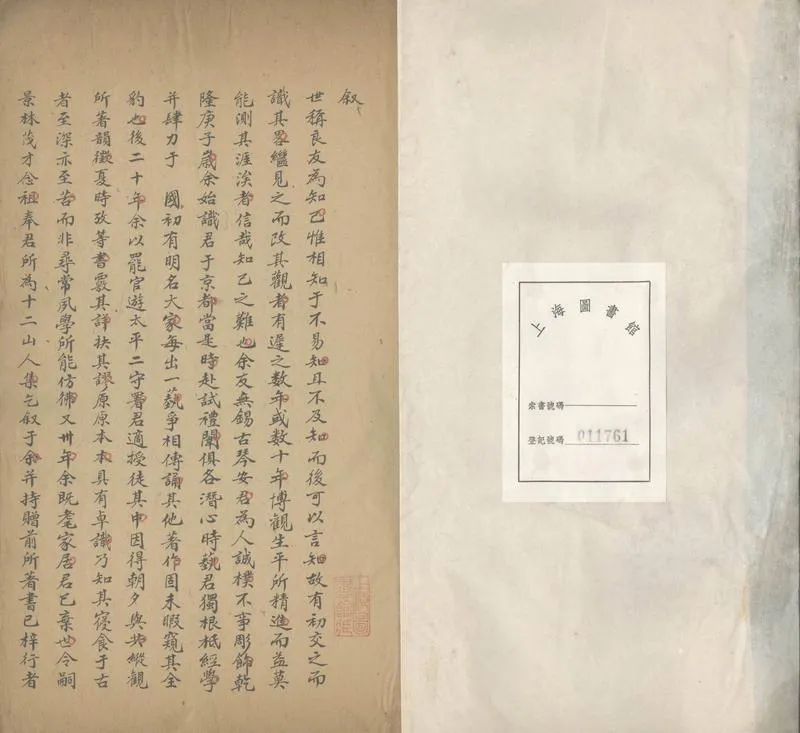 叙
世稱良友為知己惟相知于不易知且不及知而後可以言知故有初交之而
識其畧繼見之而改其觀者有遲之数年或数十年博觀生平所精進而益莫
能測其涯涘者信哉知己之難也余友無錫古琴安君為人誠樸不事彫飾乾
隆庚子歲余始識君于京都當是時赴試禮闈俱各潛心時藝君獨根柢經學
并肆力于 國初有明名大家每出一藝爭相傳誦其他著作固未暇窺其全
豹也後二十年余以罷官遊太平二守署君適授徒其中因得朝夕與共縱觀
所著韻徵夏時攷等書覈其詳抉其謬原原本本具有卓識乃知其寢食于古
者至深亦至苦而非尋常夙學所能仿彿又卅年余既耄家居君已棄世令嗣
景林茂才念祖奉君所為十二山人集乞叙于余并持贈前所著書已梓行者
上海圖書館
索書號碼
登記號碼 011761